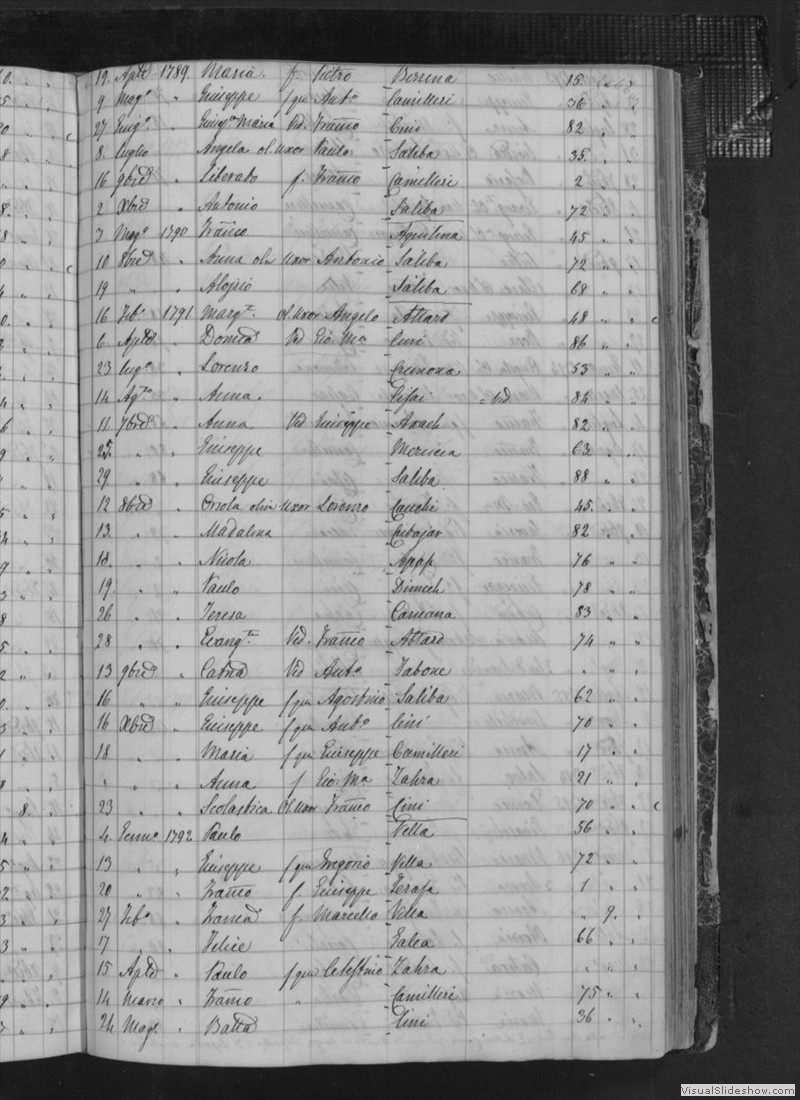 19. Aple 1789. Maria. f. Pietro Bessina 15.
9 Magº " Giuseppe f qm Antº Camilleri 36 " "
27 Giugº " Maria Vid. Franco Cini 82 "
8. Luglio " Angela ol. Uxor Paulo Saliba 35. "
16 9bre " Liberato f. Franco Camilleri 2 "
2 Xbre " Antonio Saliba 72 "
7 Magº 1790 Franco Aquilina 45 "
10 8bre " Anna olim Uxor Antonio Saliba 72 "
19 " " Aloisio Saliba 68 "
16 Febº 1791 Margta ol. Uxor Angelo Attard 48 " " c
6 Aple " Domca Vid Gio Ma Cini 86 " "
23 Lugº " Lorenzo Cremona 53 " "
14 Agto " Anna. Vid 84 " "
11 7bre " Anna Vid Giuseppe Axach 82 " "
25. " " Giuseppe Mercieca 63 " "
29. " " Giuseppe Saliba 88 " "
12 8bre " Orsola olim Uxor Lorenzo Cauchi 45. " "
13. " " Madalena 82 " "
18. " " Nicola Apap 76 " "
19. " " Paulo Dimech 78 " "
26 " " Teresa Caruana 83 " "
28 " " Evangta Vid. Franco Attard 74 " "
13 9bre " Catna Vid Antº Tabone " " "
16 " " Giuseppe f qm Agostino Saliba 62 " "
16 Xbre " Giuseppe. f qm Antº Cini 70 " "
18 " " Maria f qm Giuseppe Camilleri 17 " "
" " " Anna f Gio. Ma Zahra 21 " "
23 " " Scolastica ol. Uxor Franco Cini 70 " " c
4 Gennº 1792 Paulo Vella 56 " "
13 " " Giuseppe f qm Gregorio Vella 72 " "
20 " " Franco f. Giuseppe Zerafa 1 " "
27 Febº " Franca f. Marcello Vella " 9. "
7 " " Felice Galea 66 " "
15 Aple " Paulo f qm Celestino Zahra " " "
14 Marzo " Franco " Camilleri 75 " "
24 Magº " Batta Cini 36 " "
VisualSlideshow.com